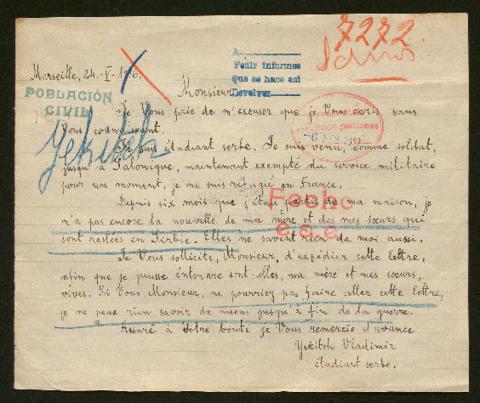 7272.
Marseille, 24-V-1916.
A
Pedir informes
Que se hace asi
Devolver
Monsieur
POBLACIÓN
CIVIL
Je Vous prie de m'excuser que je Vous écris sans
Vous connaissant.
Je suis étudiant serbe. Je suis venu, comme soldat,
jusqu'à Salonique, maintenant exempté du service militaire
pour un moment, je me suis réfugié en France.
Depuis six mois que j'étais parti de ma maison, je
n'a pas encore la nouvelle de ma mère et des mes sœurs qui
sont restées en Serbie. Elles ne savent rien de moi aussi.
Je Vous sollicite, Monsieur, d'expédier cette lettre,
afin que je puisse sont-elles, ma mère et mes sœurs,
vives. Si Vous Monsieur, ne pourriez pas faire aller cette lettre,
je ne peux rien savoir de miens jusqu'à fin de la guerre.
Assuré à Votre bonté je Vous remercie d'avance
Yekitch Vladimir
étudiant serbe.
Yekitch
Fecho
e.s.c.